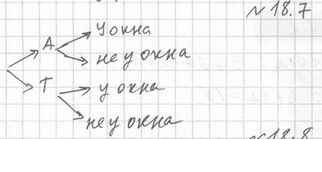 № 18.7
А
у окна
не у окна
Т
у окна
не у окна
№ 18.8